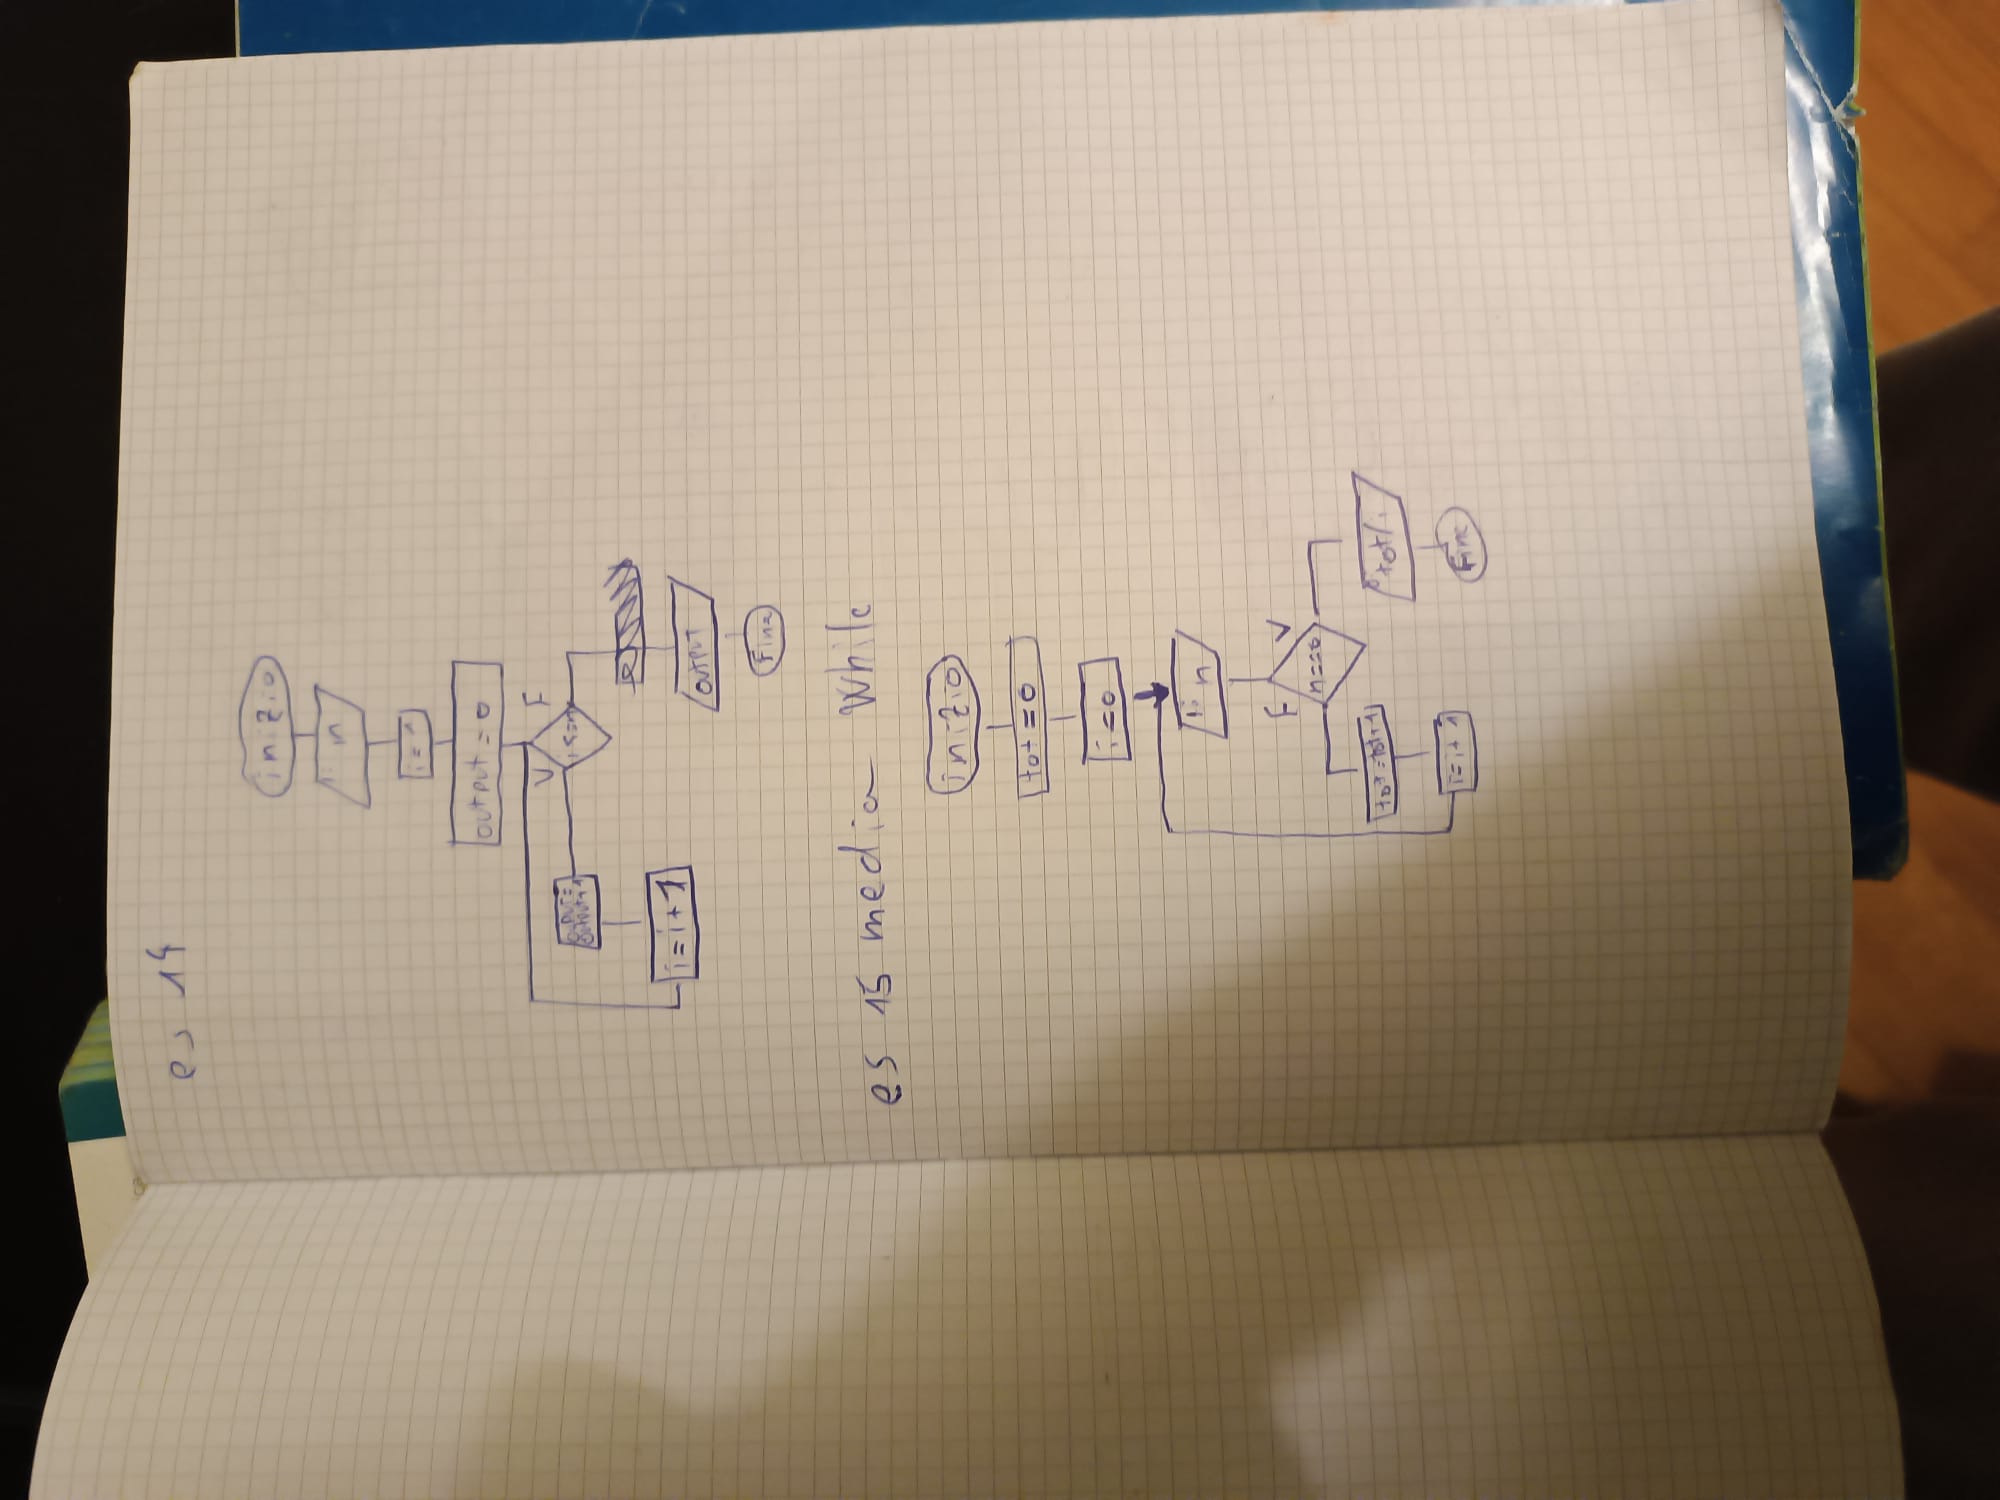 es 14
inizio
i: n
i=1
output=0
V
F
i<=n
output=
output+1
i=i+1
output
Fine
es 15 media while
inizio
tot=0
i=0
i: n
F
V
n==0
tot=tot+1
i=i+1
o: tot/i
Fine